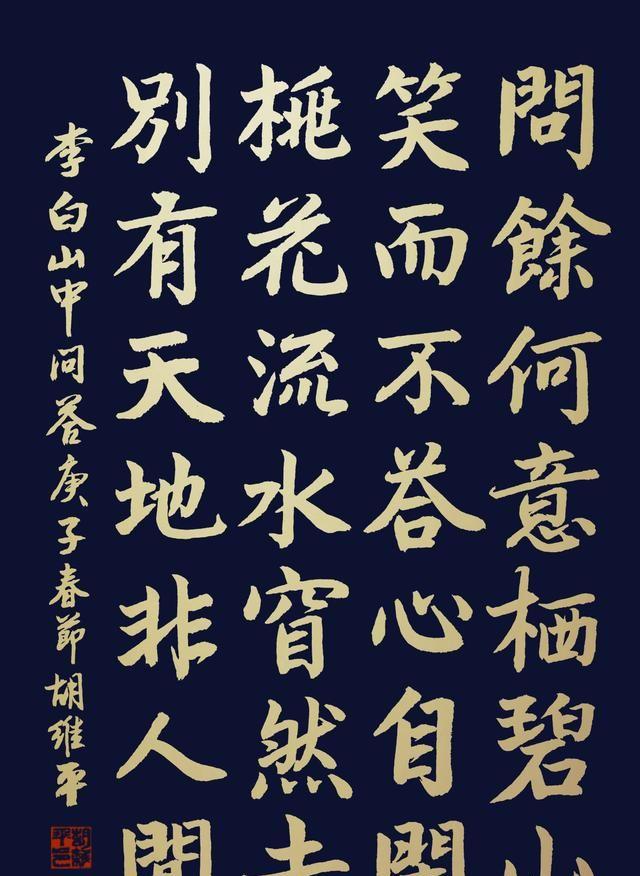 問餘何意栖碧山
笑而不荅心自
桃花流水窅然去
別有天地非人間
李白山中问荅庚子春節胡維平